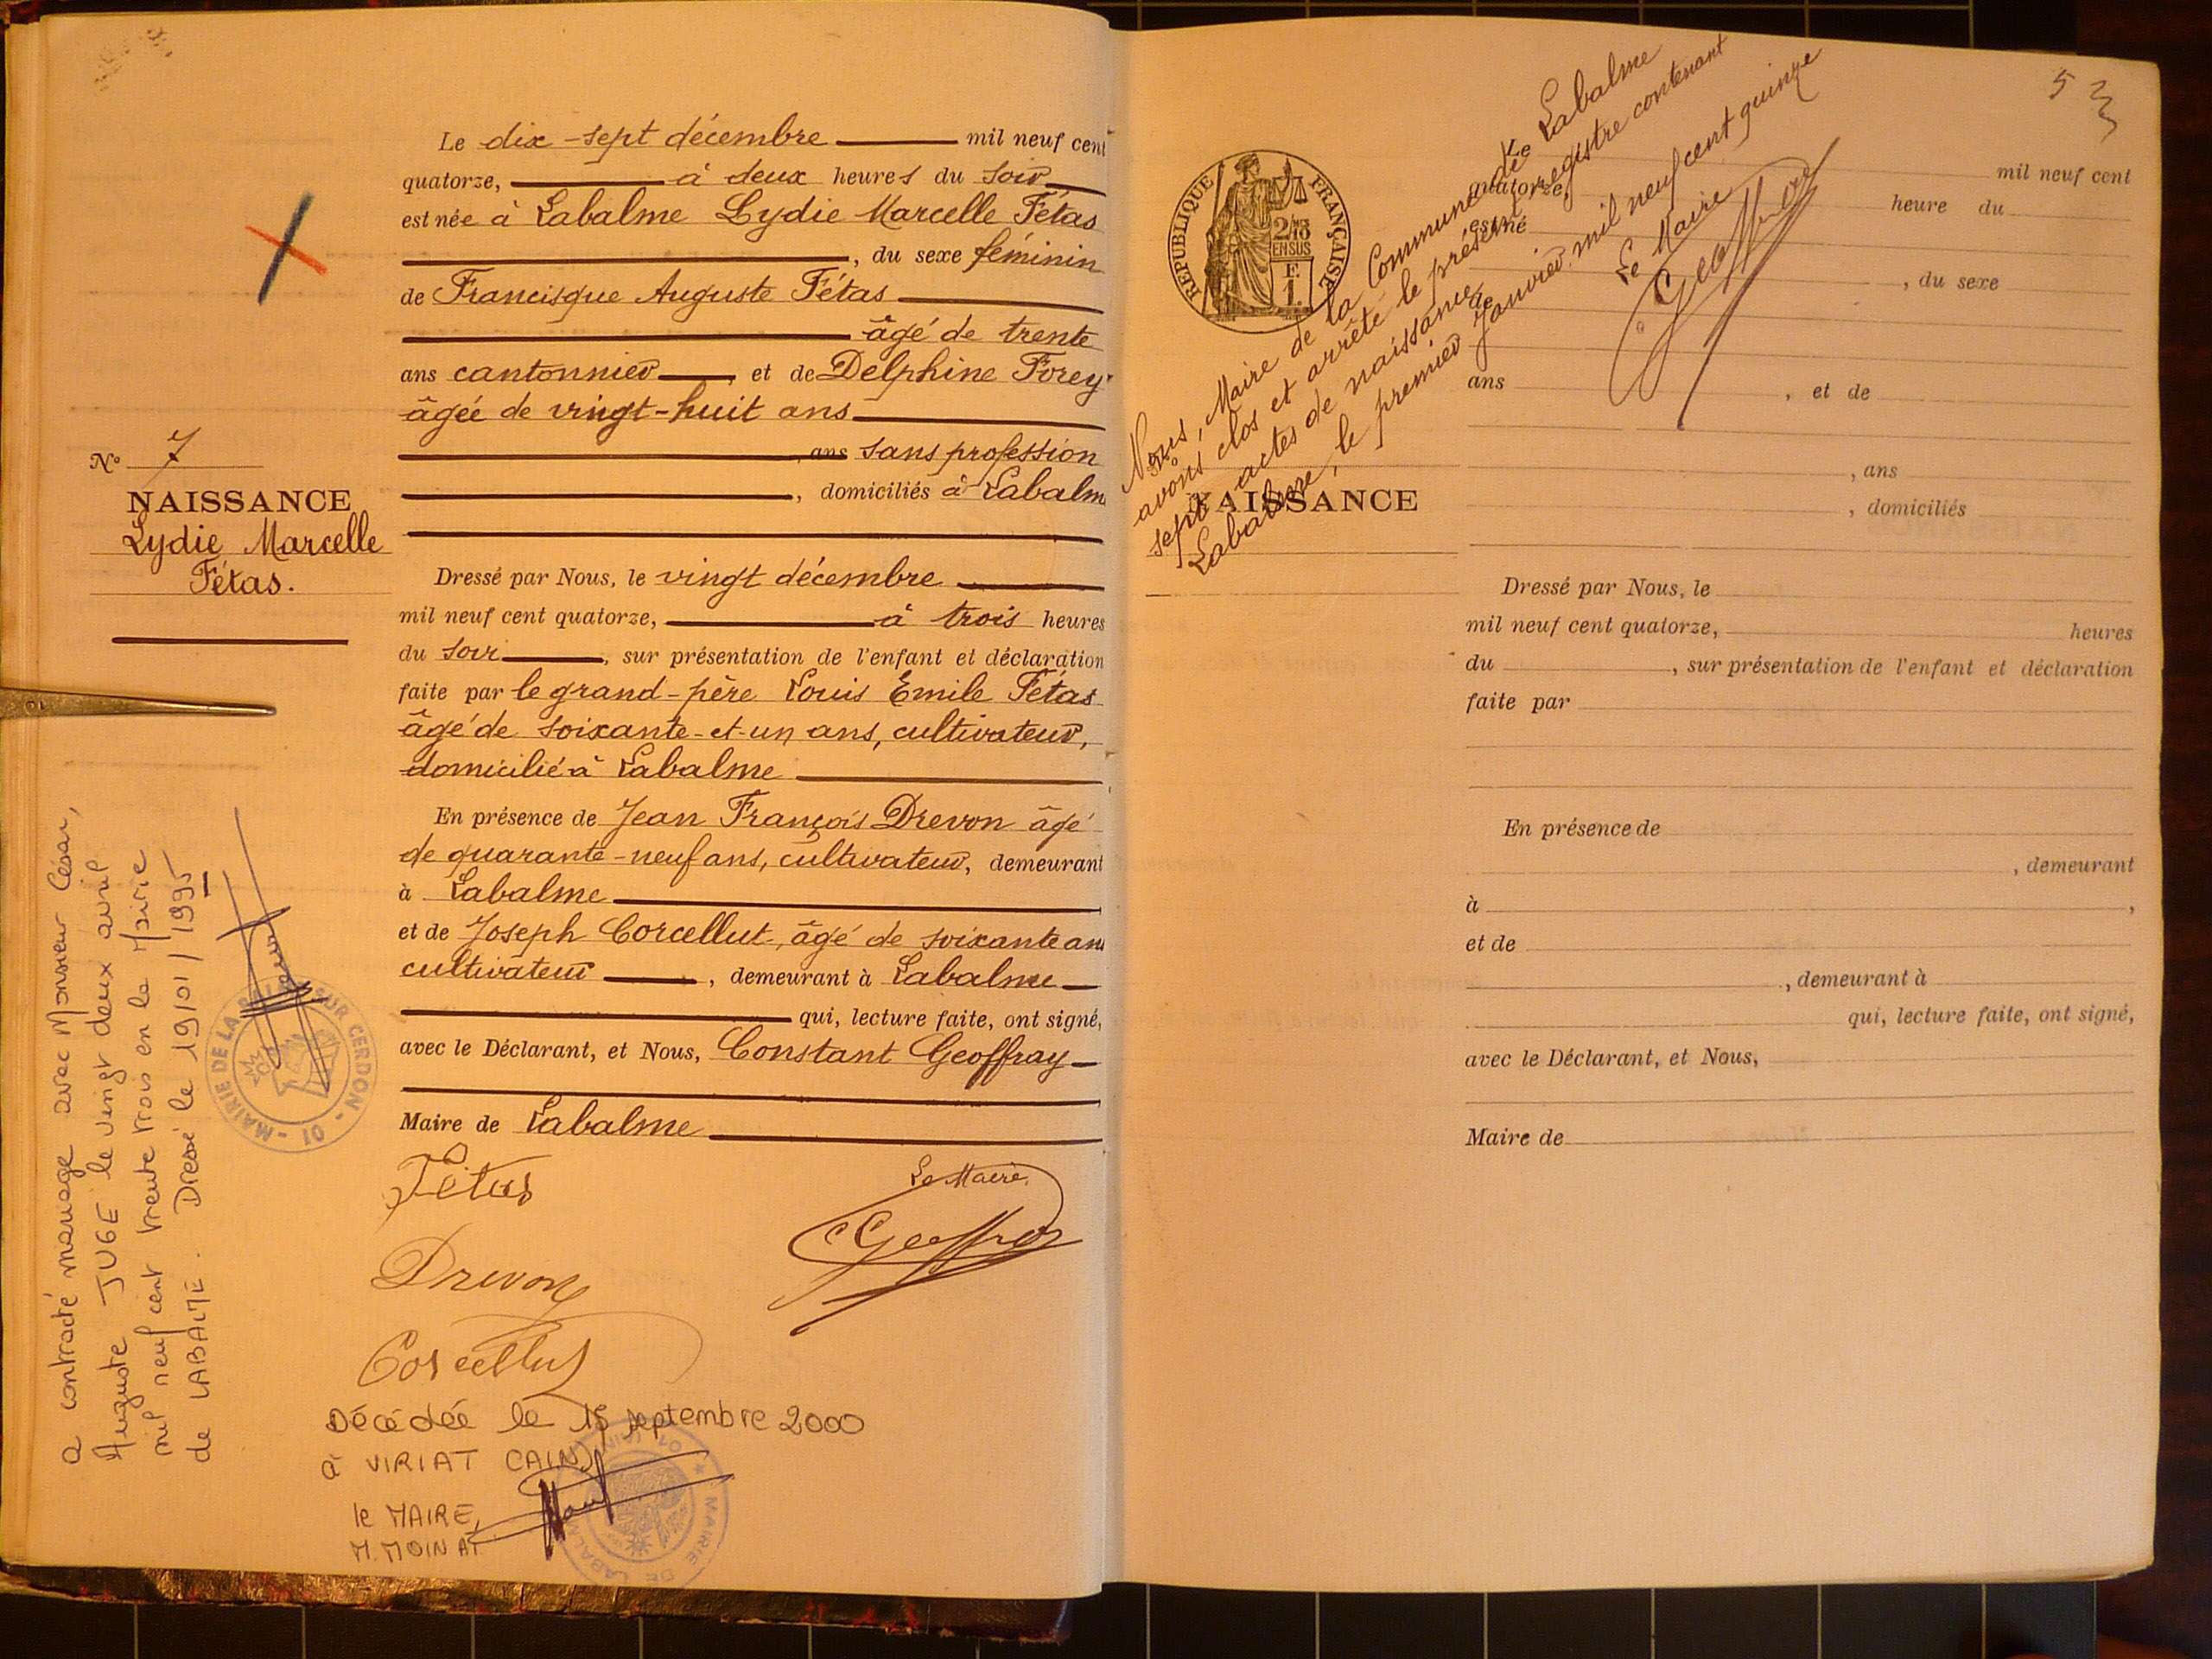 Le dix-sept décembre mil neuf cent
quatorze, à deux heures du soir
est née à Labalme Lydie Marcelle Fétas
, du sexe féminin
de Francisque Auguste Fétas
âgé de trente
ans cantonnier, et de Delphine Forey
âgée de vingt-huit ans
, ans sans profession
, domiciliés à Labalme
N° 7
NAISSANCE
Lydie Marcelle
Fétas.
Dressé par Nous, le vingt décembre
mil neuf cent quatorze, à trois heures
du soir, sur présentation de l'enfant et déclaration
faite par le grand-père Louis Emile Fétas
âgé de soixante-et-un ans, cultivateur,
domicilié à Labalme
En présence de Jean François Drevon âgé
de quarante-neuf ans, cultivateur, demeurant
à Labalme
et de Joseph Corcellut, âgé de soixante ans
cultivateur, demeurant à Labalme
qui, lecture faite, ont signé,
avec le Déclarant, et Nous, Constant Geoffray
Maire de Labalme
Fétas
Le Maire
Geoffray
Drevon
Corcellut
a contracté mariage avec Monsieur César,
Auguste JUGE le vingt deux avril
mil neuf cent trente trois en la Mairie
de LABALME. Dressé le 19/01/1995
MAIRIE DE LA BALME SUR CERDON - 01
Décédée le 15 septembre 2000
à VIRIAT (AIN)
le MAIRE,
M. MOINAT
MAIRIE DE LABALME
53
RÉPUBLIQUE FRANÇAISE
2/10
EN SUS
F.
1.
Nous, Maire de la Commune de Labalme
avons clos et arrêté le présent registre contenant
sept actes de naissance
Labalme, le premier Janvier mil neuf cent quinze
Le Maire
Geoffray
Le mil neuf cent
quatorze, heure du
est né
, du sexe
de
ans , et de
, ans
, domiciliés
N°
NAISSANCE
Dressé par Nous, le
mil neuf cent quatorze, heures
du , sur présentation de l'enfant et déclaration
faite par
En présence de
, demeurant
à ,
et de
, demeurant à
qui, lecture faite, ont signé,
avec le Déclarant, et Nous,
Maire de